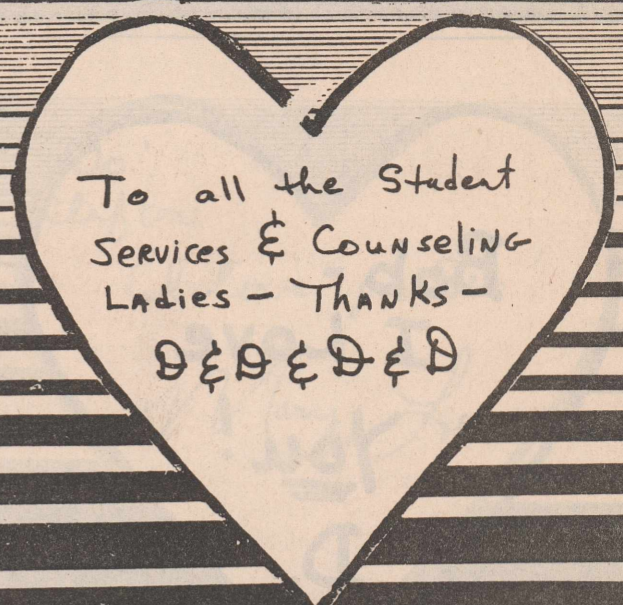 To all the Student
Services & Counseling
Ladies - Thanks -
D & D & D & D